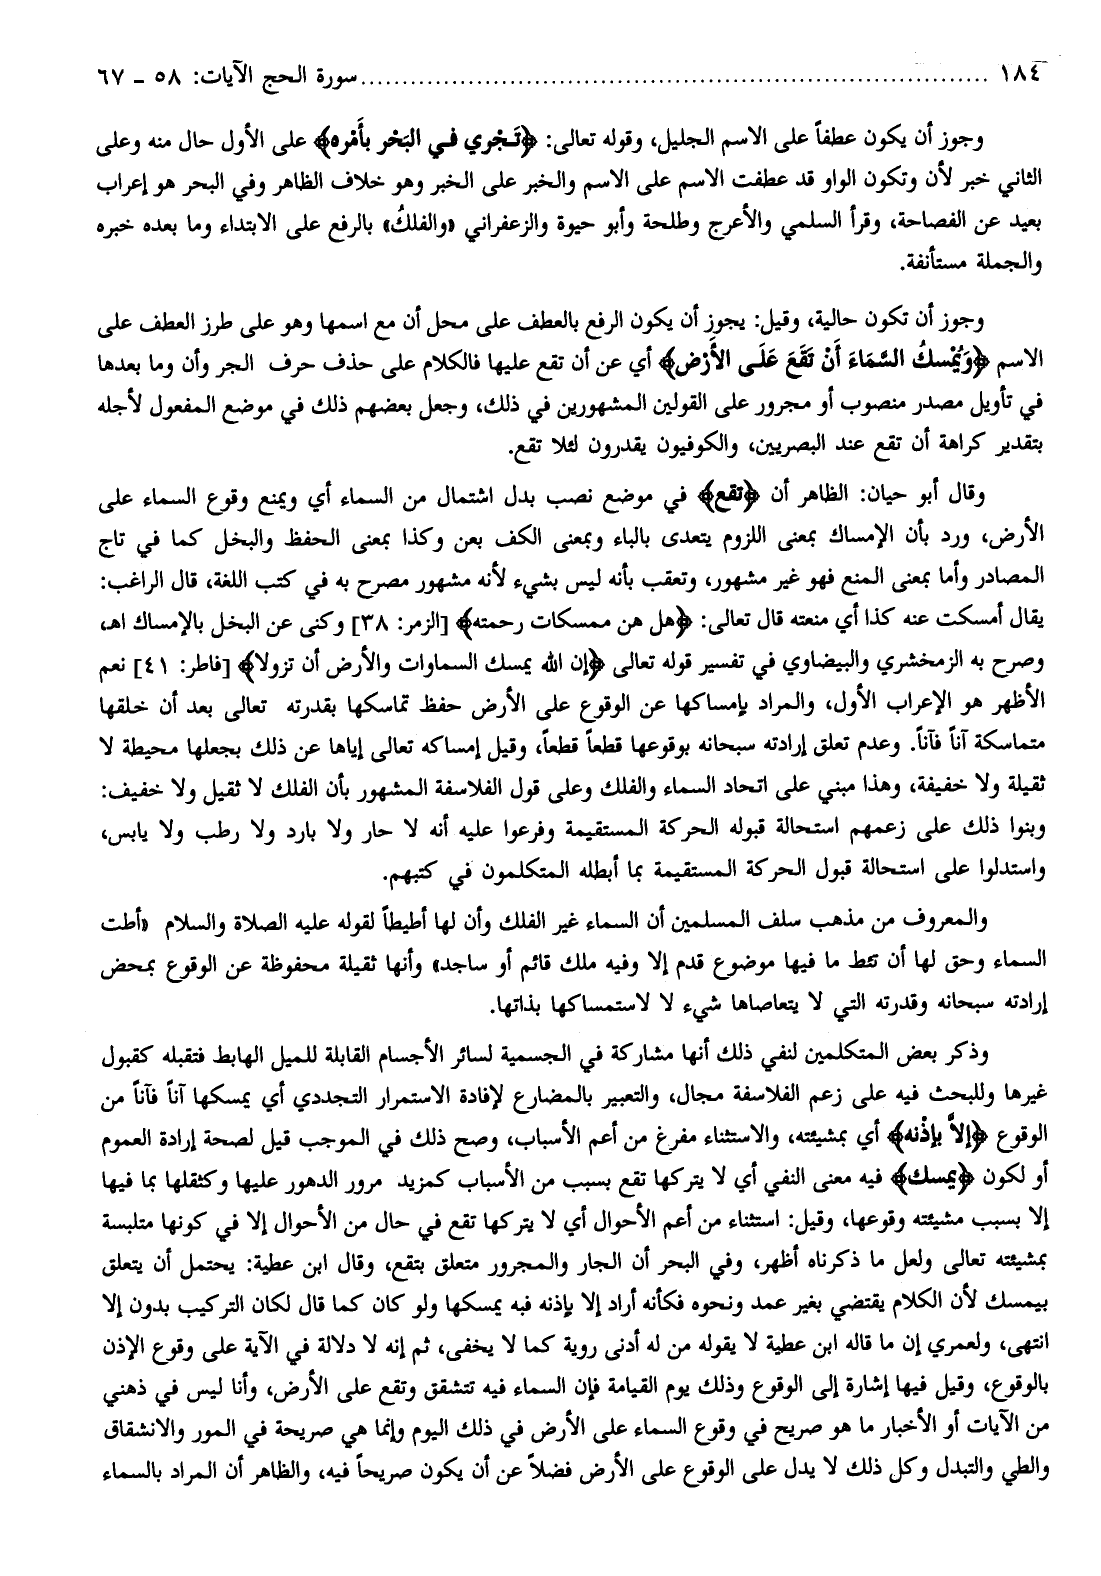 ١٨٤ ........................................ سورة الحج الآيات: ٥٨ ـ ٦٧
وجوز أن يكون عطفاً على الاسم الجليل، وقوله تعالى: ﴿تَجْري في البَحْر بأَمْره﴾ على الأول حال منه وعلى
الثاني خبر لأن وتكون الواو قد عطفت الاسم على الاسم والخبر على الخبر وهو خلاف الظاهر وفي البحر هو إعراب
بعيد عن الفصاحة، وقرأ السلمي والأعرج وطلحة وأبو حيوة والزعفراني «والفلكُ» بالرفع على الابتداء وما بعده خبره
والجملة مستأنفة.
وجوز أن تكون حالية، وقيل: يجوز أن يكون الرفع بالعطف على محل أن مع اسمها وهو على طرز العطف على
الاسم ﴿وَيُمْسكُ السَّمَاءَ أَنْ تَقَعَ عَلَى الأَرْض﴾ أي عن أن تقع عليها فالكلام على حذف حرف الجر وأن وما بعدها
في تأويل مصدر منصوب أو مجرور على القولين المشهورين في ذلك، وجعل بعضهم ذلك في موضع المفعول لأجله
بتقدير كراهة أن تقع عند البصريين، والكوفيون يقدرون لئلا تقع.
وقال أبو حيان: الظاهر أن ﴿تقع﴾ في موضع نصب بدل اشتمال من السماء أي ويمنع وقوع السماء على
الأرض، ورد بأن الإمساك بمعنى اللزوم يتعدى بالباء وبمعنى الكف بعن وكذا بمعنى الحفظ والبخل كما في تاج
المصادر وأما بمعنى المنع فهو غير مشهور، وتعقب بأنه ليس بشيء لأنه مشهور مصرح به في كتب اللغة، قال الراغب:
يقال أمسكت عنه كذا أي منعته قال تعالى: ﴿هل هن ممسكات رحمته﴾ [الزمر: ٣٨] وكنى عن البخل بالإمساك اهـ،
وصرح به الزمخشري والبيضاوي في تفسير قوله تعالى ﴿إن الله يمسك السماوات والأرض أن تزولا﴾ [فاطر: ٤١] نعم
الأظهر هو الإعراب الأول، والمراد بإمساكها عن الوقوع على الأرض حفظ تماسكها بقدرته تعالى بعد أن خلقها
متماسكة آناً فآناً. وعدم تعلق إرادته سبحانه بوقوعها قطعاً قطعاً، وقيل إمساكه تعالى إياها عن ذلك بجعلها محيطة لا
ثقيلة ولا خفيفة، وهذا مبني على اتحاد السماء والفلك وعلى قول الفلاسفة المشهور بأن الفلك لا ثقيل ولا خفيف:
وبنوا ذلك على زعمهم استحالة قبوله الحركة المستقيمة وفرعوا عليه أنه لا حار ولا بارد ولا رطب ولا يابس،
واستدلوا على استحالة قبول الحركة المستقيمة بما أبطله المتكلمون في كتبهم.
والمعروف من مذهب سلف المسلمين أن السماء غير الفلك وأن لها أطيطاً لقوله عليه الصلاة والسلام «أطت
السماء وحق لها أن تئط ما فيها موضوع قدم إلا وفيه ملك قائم أو ساجد» وأنها ثقيلة محفوظة عن الوقوع بمحض
إرادته سبحانه وقدرته التي لا يتعاصاها شيء لا لاستمساكها بذاتها.
وذكر بعض المتكلمين لنفي ذلك أنها مشاركة في الجسمية لسائر الأجسام القابلة للميل الهابط فتقبله كقبول
غيرها وللبحث فيه على زعم الفلاسفة مجال، والتعبير بالمضارع لإفادة الاستمرار التجددي أي يمسكها آناً فآناً من
الوقوع ﴿إلاَّ بإذْنه﴾ أي بمشيئته، والاستثناء مفرغ من أعم الأسباب، وصح ذلك في الموجب قيل لصحة إرادة العموم
أو لكون ﴿يمسك﴾ فيه معنى النفي أي لا يتركها تقع بسبب من الأسباب كمزيد مرور الدهور عليها وكثقلها بما فيها
إلا بسبب مشيئته وقوعها، وقيل: استثناء من أعم الأحوال أي لا يتركها تقع في حال من الأحوال إلا في كونها متلبسة
بمشيئته تعالى ولعل ما ذكرناه أظهر، وفي البحر أن الجار والمجرور متعلق بتقع، وقال ابن عطية: يحتمل أن يتعلق
بيمسك لأن الكلام يقتضي بغير عمد ونحوه فكأنه أراد إلا بإذنه فبه يمسكها ولو كان كما قال لكان التركيب بدون إلا
انتهى، ولعمري إن ما قاله ابن عطية لا يقوله من له أدنى روية كما لا يخفى، ثم إنه لا دلالة في الآية على وقوع الإذن
بالوقوع، وقيل فيها إشارة إلى الوقوع وذلك يوم القيامة فإن السماء فيه تتشقق وتقع على الأرض، وأنا ليس في ذهني
من الآيات أو الأخبار ما هو صريح في وقوع السماء على الأرض في ذلك اليوم وإنما هي صريحة في المور والانشقاق
والطي والتبدل وكل ذلك لا يدل على الوقوع على الأرض فضلاً عن أن يكون صريحاً فيه، والظاهر أن المراد بالسماء